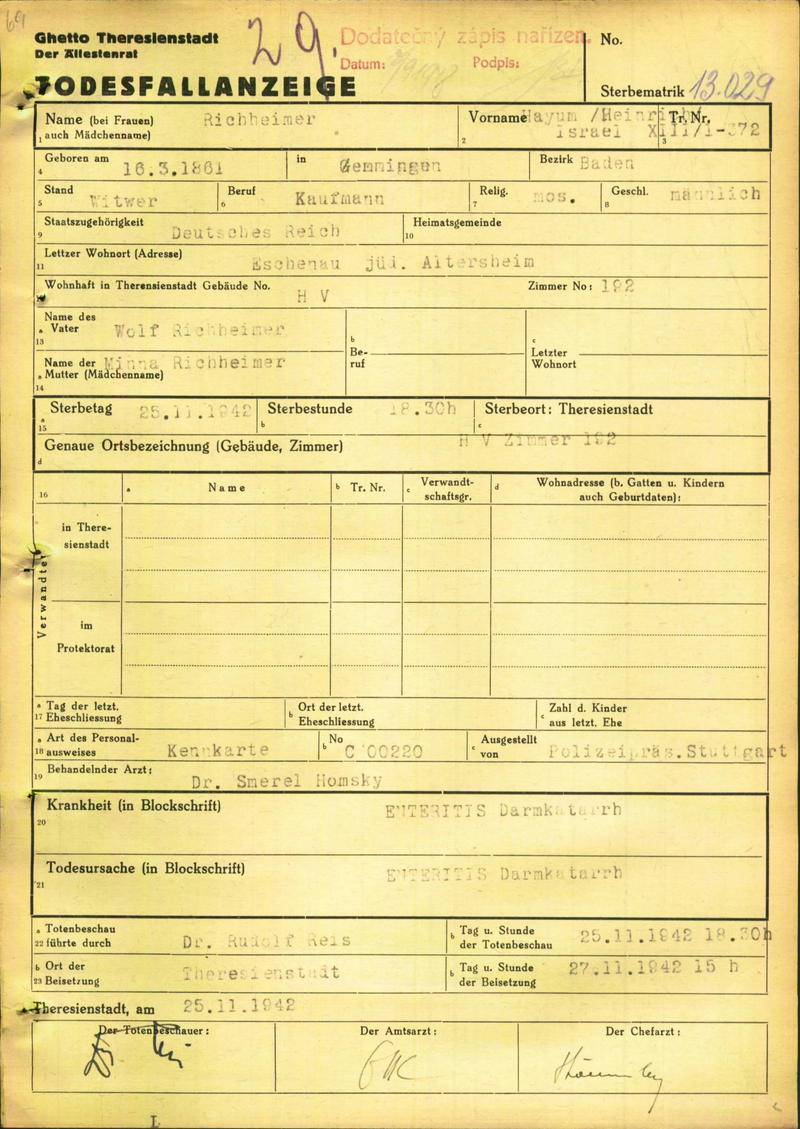 69
Ghetto Theresienstadt
Der Ältestenrat
29.
Dodatečný zápis nařízen.
Datum:
Podpis:
No.
TODESFALLANZEIGE
Sterbematrik 13.029
Name (bei Frauen) Richheimer
1 auch Mädchenname)
Vorname Hayum /Heinrich/
2 Israel
Tr. Nr.
3 XIII/1-372
4 Geboren am 16.3.1861 in Gemmingen Bezirk Baden
5 Stand Witwer 6 Beruf Kaufmann 7 Relig. mos. 8 Geschl. männlich
9 Staatszugehörigkeit Deutsches Reich 10 Heimatsgemeinde
11 Lettzer Wohnort (Adresse) Eschenau jüd. Altersheim
Wohnhaft in Theresienstadt Gebäude No. H V Zimmer No: 192
Name des
a Vater Wolf Richheimer
13
b Be-
ruf
c Letzter
Wohnort
Name der Minna Richheimer
a Mutter (Mädchenname)
14
a 15 Sterbetag 25.11.1942 b Sterbestunde 18.30h c Sterbeort: Theresienstadt
d Genaue Ortsbezeichnung (Gebäude, Zimmer) H V Zimmer 192
16 a Name b Tr. Nr. c Verwandt-
schaftsgr. d Wohnadresse (b. Gatten u. Kindern
auch Geburtdaten):
Verwandte
in There-
sienstadt
im
Protektorat
a Tag der letzt.
17 Eheschliessung
b Ort der letzt.
Eheschliessung
c Zahl d. Kinder
aus letzt. Ehe
a Art des Personal-
18 ausweises Kennkarte
b No C 00220
c Ausgestellt
von Polizeipräs.Stuttgart
19 Behandelnder Arzt: Dr. Smerel Homsky
20 Krankheit (in Blockschrift) ENTERITIS Darmkatarrh
21 Todesursache (in Blockschrift) ENTERITIS Darmkatarrh
a Totenbeschau
22 führte durch Dr. Rudolf Reis
b Tag u. Stunde
der Totenbeschau 25.11.1942 18.30h
b Ort der
23 Beisetzung Theresienstadt
b Tag u. Stunde
der Beisetzung 27.11.1942 15 h
Theresienstadt, am 25.11.1942
Der Totenbeschauer:
Der Amtsarzt:
Der Chefarzt:
I.